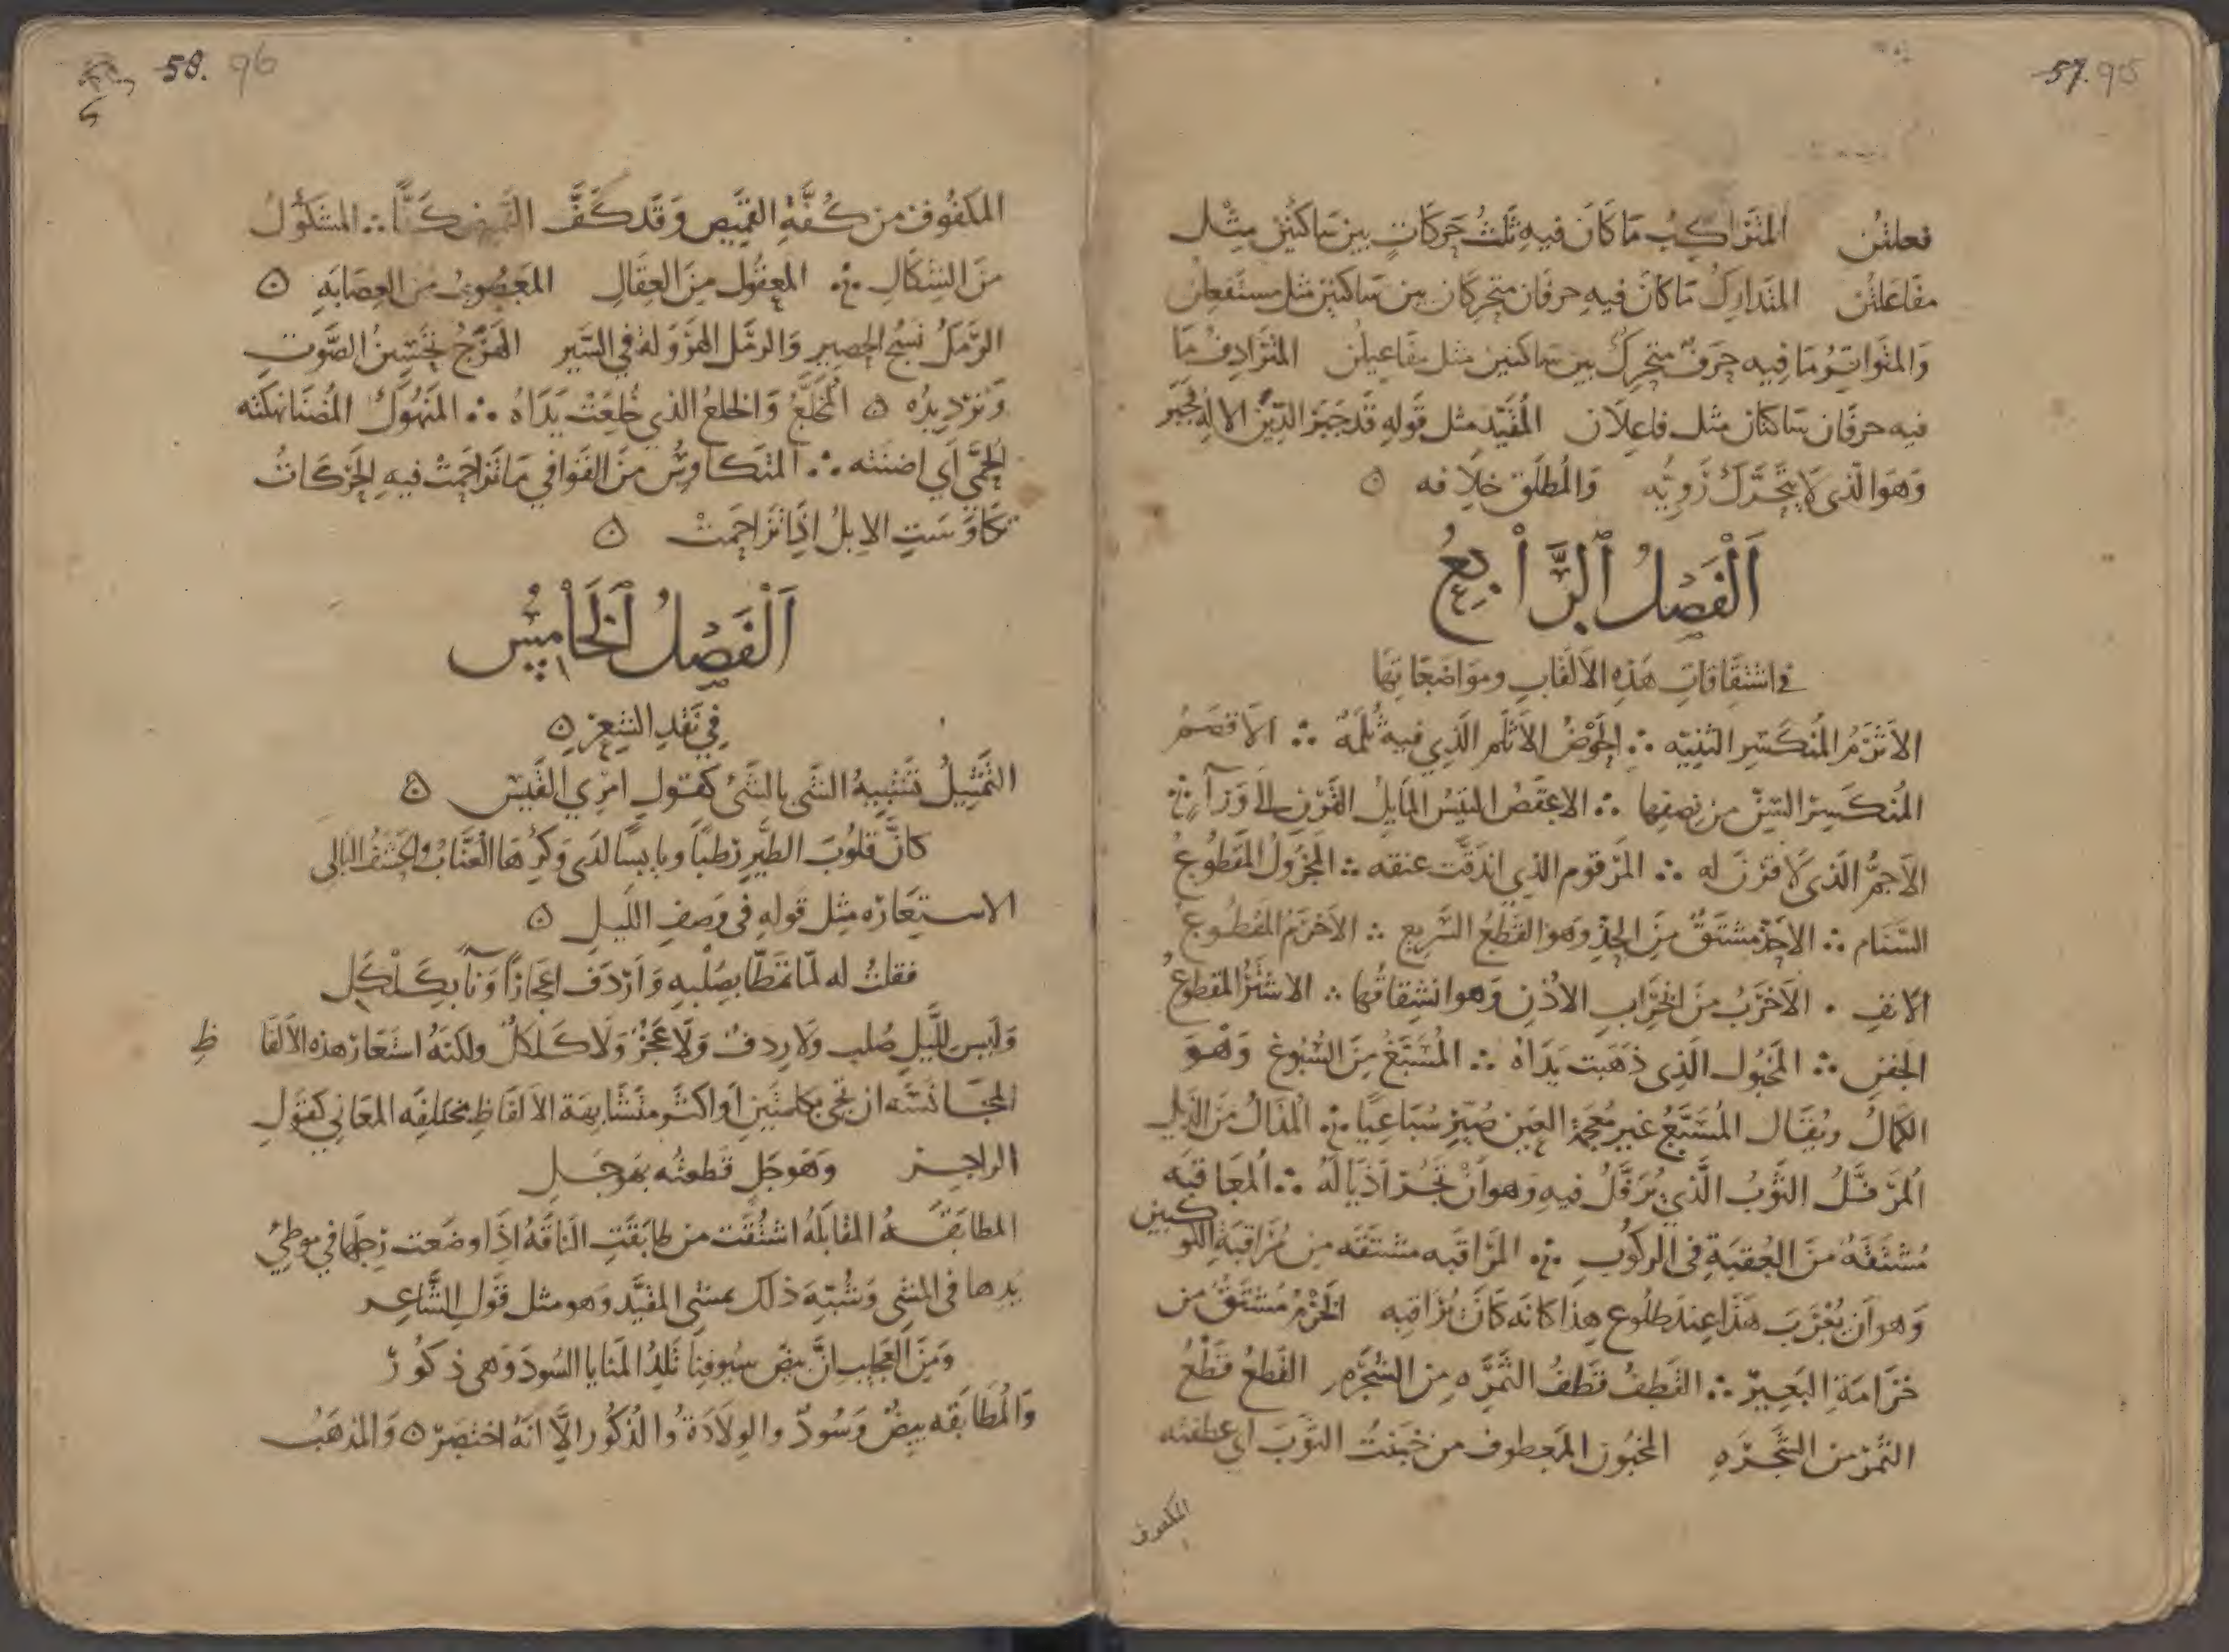 57. 95
فعلتن المتراكب ما كان فيه ثلث حركات بين ساكنين مثل
مفاعلتن المتدارك ما كان فيه حرفان متحركان بين ساكنين مثل مستفعلن
والمتواتر ما فيه حرف متحرك بين ساكنين مثل مفاعيلن المترادف ما
فيه حرفان ساكنان مثل فاعلان المقيد مثل قوله قد جبر الدين الاله فجبر
وهو الذى لا يتحرك رويه والمطلق خلافه ه
اَلْفَصْلُ الرَّابِعُ
فى اشتقاقات هذه الالقاب ومواضعاتها
الاثرم المنكسر الثنيه ∴ الحوض الاثلم الذي فيه ثلمة ∴ الاقصم
المنكسر السن من نصفها ∴ الاعقص التيس المايل القرن الى ورآ ∴
الاجم الذى لا قرن له ∴ الموقوم الذي اندقت عنقه ∴ المجزول المقطوع
السنام ∴ الاحذ مشتق من الحذ وهو القطع السريع ∴ الاخرم المقطوع
الانف . الاخرب من الخراب الاذن وهو انشقاقها ∴ الاشتر المقطوع
الجفن ∴ المخبول الذى ذهبت يداه ∴ المسبغ من السبوغ وهو
الكمال ويقال المسبع غير معجمة العين صير سباعيا ∴ المذال من الذيل
المرفل الثوب الذي يرفل فيه وهو ان تجر اذياله ∴ المعاقبه
مشتقه من العقبة فى الركوب ∴ المراقبه مشتقه من مراقبة الكوكبين
وهو ان يغرب هذا عند طلوع هذا كانه كان يراقبه الخزم مشتق من
خزامة البعير ∴ القطف قطف الثمره من الشجره القطع قطع
الثمر من الشجره المخبون المعطوف من خبنت الثوب اى عطفته
المكفوف
58. 96
المكفوف من كفة القميص وقد كففت القميص كفا ∴ المشكول
من الشكال ∴ المعقول من العقال المعصوب من العصابه ه
الرمل نسج الحصير والرمل الهرولة في السير الهزج تحسين الصوت
وترديده ه المخلع والخلع الذي خلعت يداه ∴ المنهوك المضنا نهكته
الحمى أي اضنته ∴ المتكاوس من القوافي ما تزاحمت فيه الحركات
تكاوست الابل اذا تزاحمت ه
اَلْفَصْلُ الخَامِسُ
في نقد الشعر ه
التمثيل تشبيه الشى بالشئ كقول امرئ القيس ه
كان قلوب الطير رطبا ويابسا لدى وكرها العناب والحشف البالى
الاستعاره مثل قوله فى وصف الليل ه
فقلت له لما تمطا بصلبه واردف اعجازا ونآ بكلكل
وليس لليل صلب ولا ردف ولا عجز ولا كلكل ولكنه استعار هذه الالفا ظ
المجانسه ان تجي بكلمتين او اكثر متشابهة الالفاظ مختلفه المعاني كقول
الراجز وهوجل قطعته بهوجل
المطابقه المقابله اشتقت من طابقت الناقة اذا وضعت رجلها في موطئ
يدها فى المشى وشبه ذلك بمشى المقيد وهو مثل قول الشاعر
ومن العجايب ان بيض سيوفنا تلد المنايا السود وهى ذكور
والمطابقه بيض وسود والولادة والذكور الا انه اختصر ه والمذهب